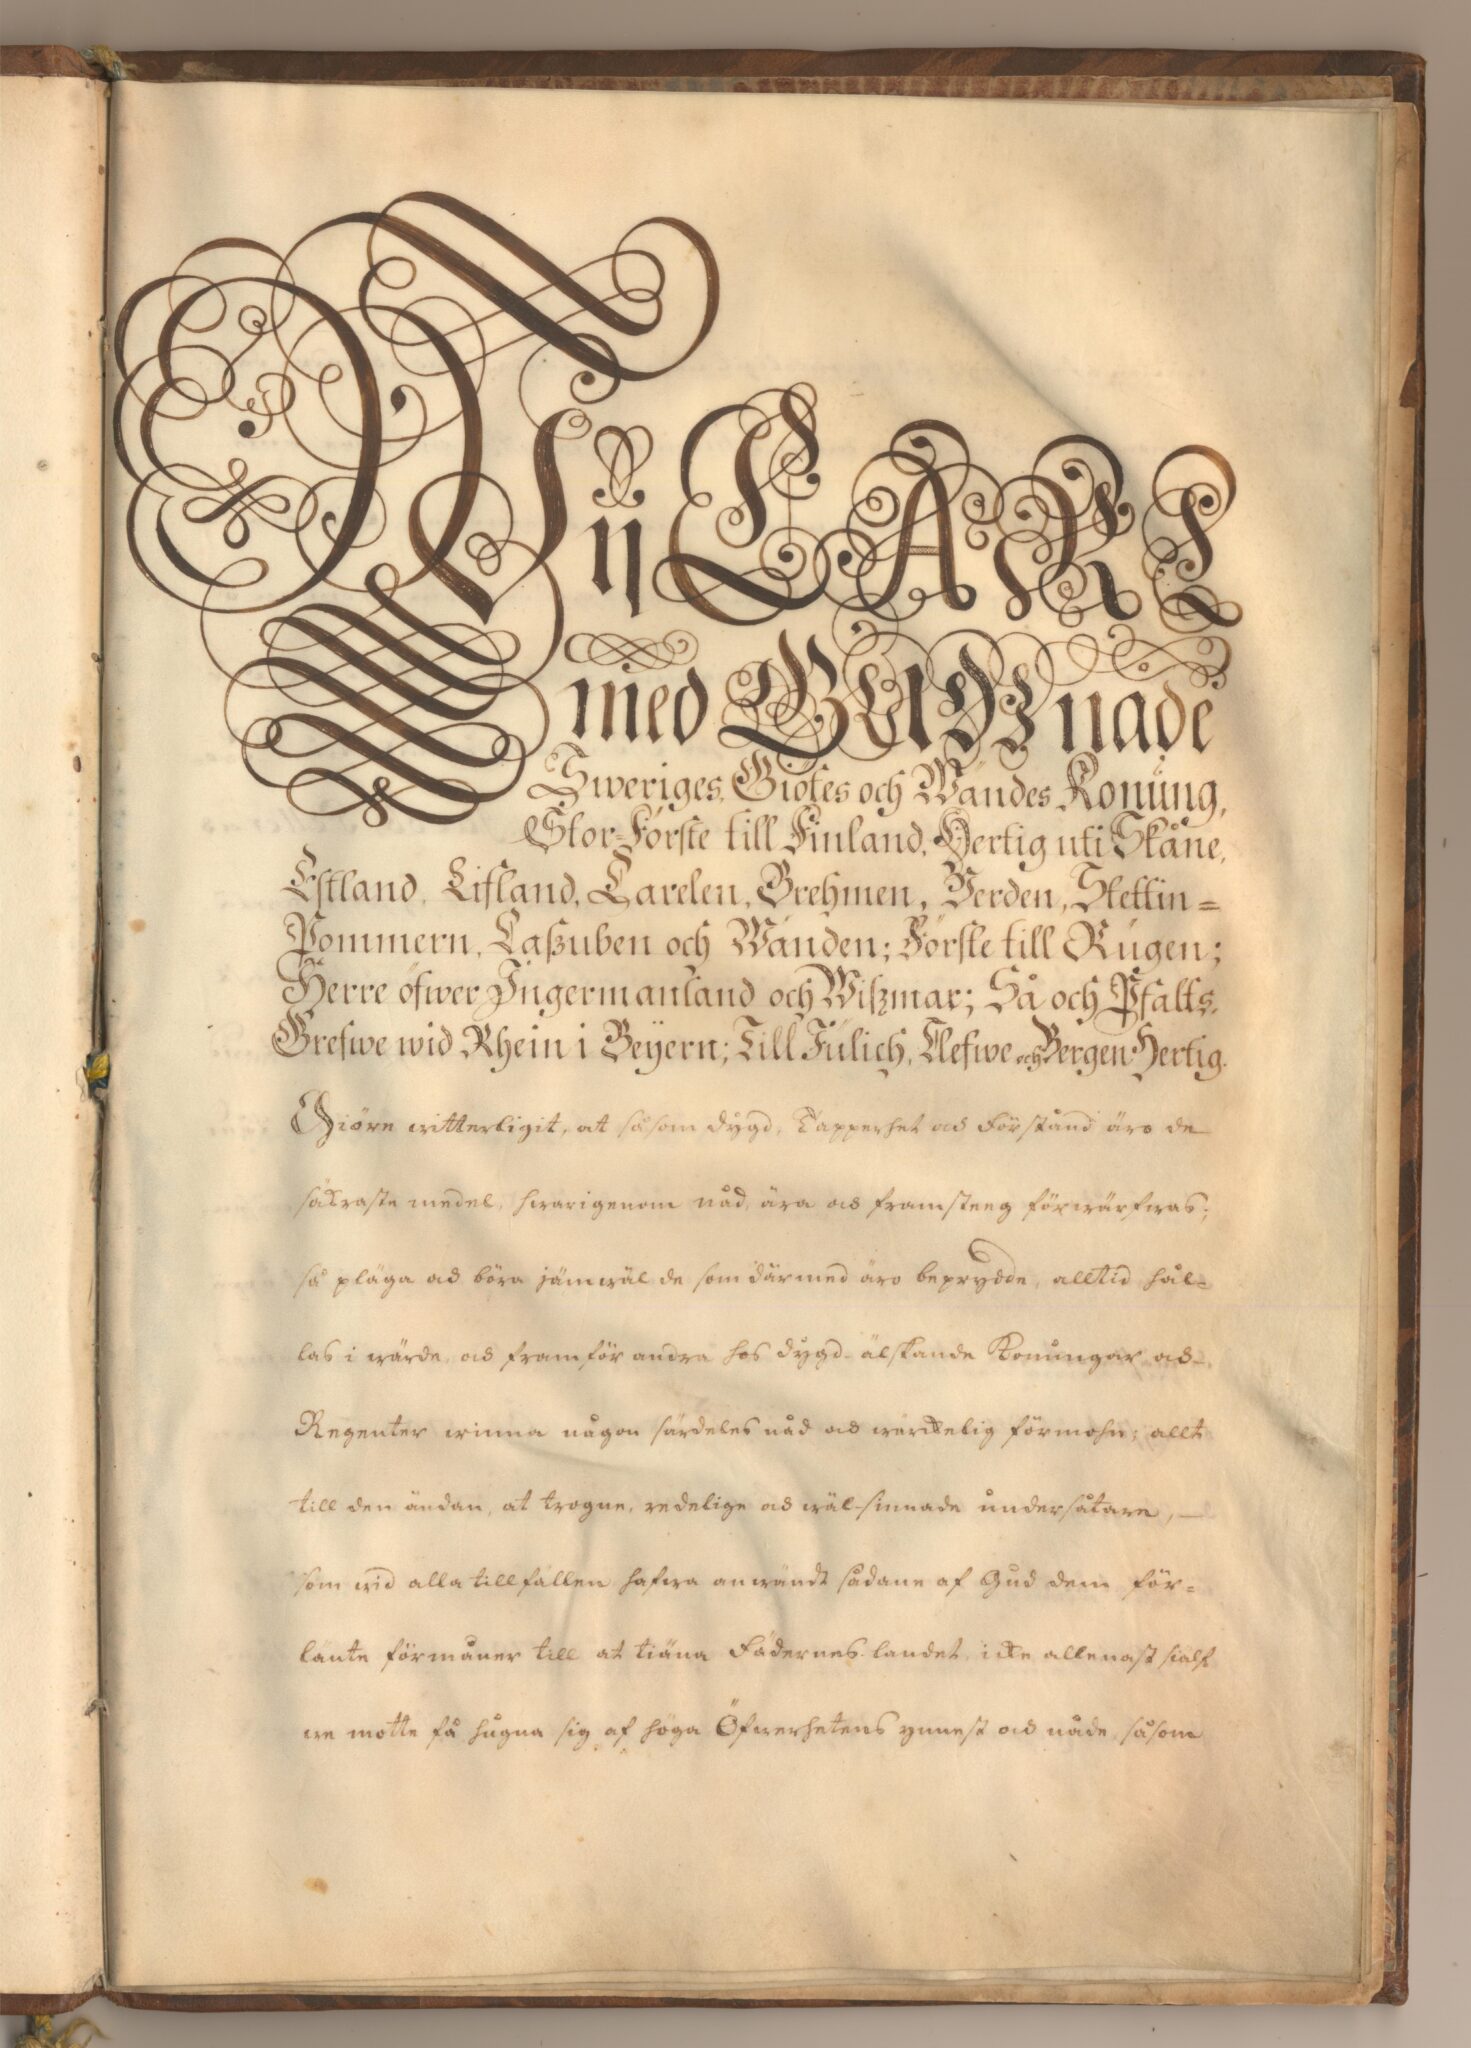 Wij CARL
med GUDZ nade
Sweriges, Giötes och Wändes Konung,
Stor-Förste till Finland, Hertig uti Skåne,
Estland, Lifland, Carelen, Brehmen, Verden, Stettin=
Pommern, Caßuben och Wänden; Förste till Rügen;
Herre öfwer Ingermanland och Wißmar; Så och Pfaltz,
Grefwe wid Rhein i Beÿern; Till Jülich, Clefwe och Bergen Hertig.
Giöre witterligit, at såsom dygd, Tapperhet och Förstånd äro de
säkraste medel, hwarigenom nåd, ära och framsteeg förwärfwas;
så pläga och böra jämwäl de som därmed äro beprydde, alltid hål=
las i wärde, och framför andra hos dygd-älskande Konungar och
Regenter winna någon särdeles nåd och wärckelig förmohn; allt
till den ändan, at trogne, redelige och wäl-sinnade undersåtare,
som wid alla tillfällen hafwa anwändt sådane af Gud dem för=
länte förmåner till at tiäna Fädernes landet, icke allenast sielf
we motte få hugna sig af höga Öfwerhetens ynnest och nåde, såsom